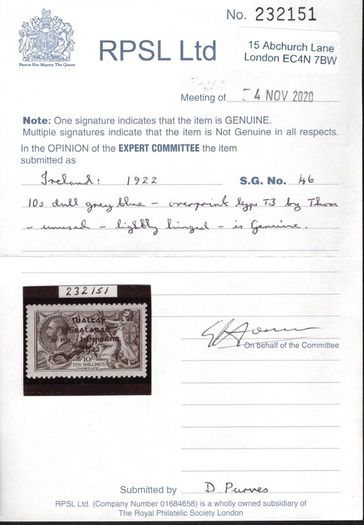 No. 232151
Patron Her Majesty The Queen
RPSL Ltd
15 Abchurch Lane
London EC4N 7BW
Meeting of - 4 NOV 2020
Note: One signature indicates that the item is GENUINE.
Multiple signatures indicate that the item is Not Genuine in all respects.
In the OPINION of the EXPERT COMMITTEE the item
submitted as
Ireland: 1922 S.G. No. 46
10s dull grey blue - overprint type T3 by Thom
- unused - lightly hinged - is Genuine.
232151
Rialtas
Sealadac
na héireann
1922
10/-
TEN SHILLINGS
POSTAGE
On behalf of the Committee
Submitted by D. Purves
RPSL Ltd. (Company Number 01684658) is a wholly owned subsidiary of
The Royal Philatelic Society London